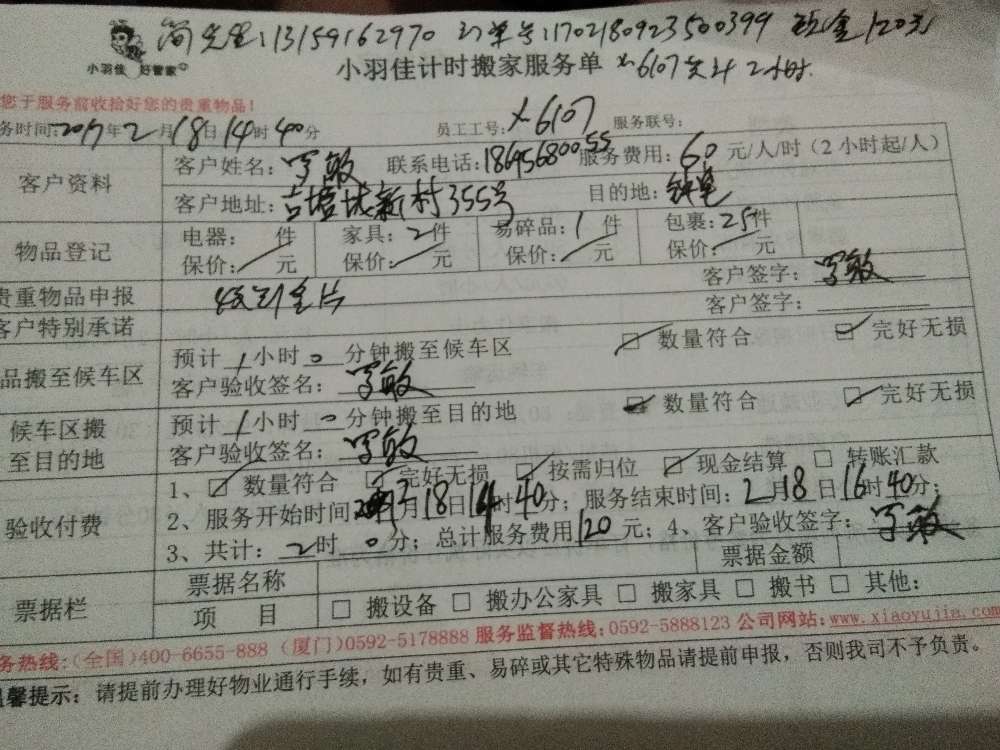 简先生:13159162970 订单号:1702180923500399 现金120元
小羽佳 好管家
小羽佳计时搬家服务单 x-6107 共计2小时.
您于服务前收拾好您的贵重物品!
务时间:2017年2月18日14时40分 员工工号: x-6107 服务联号:
客户资料 客户姓名: 敏 联系电话:18695680055 服务费用:60元/人/时(2小时起/人)
客户地址: 新村355号 目的地:
物品登记 电器:/件 家具:2件 易碎品:1件 包裹:25件
保价:/元 保价:/元 保价:/元 保价:/元
贵重物品申报 客户签字: 敏
客户特别承诺 客户签字:
品搬至候车区 预计1小时0分钟搬至候车区 ☑ 数量符合 ☑ 完好无损
客户验收签名: 敏
候车区搬至目的地 预计1小时0分钟搬至目的地 ☑ 数量符合 ☑ 完好无损
客户验收签名: 敏
验收付费 1、☑ 数量符合 ☑ 完好无损 ☑ 按需归位 ☑ 现金结算 □ 转账汇款
2、服务开始时间 2月18日14时40分; 服务结束时间:2月18日16时40分;
3、共计:2时0分; 总计服务费用120元; 4、客户验收签字: 敏
票据栏 票据名称 票据金额
项 目 □ 搬设备 □ 搬办公家具 □ 搬家具 □ 搬书 □ 其他:
务热线:(全国)400-6655-888 (厦门)0592-5178888 服务监督热线:0592-5888123 公司网站:www.xiaoyujia.com
温馨提示: 请提前办理好物业通行手续,如有贵重、易碎或其它特殊物品请提前申报,否则我司不予负责。